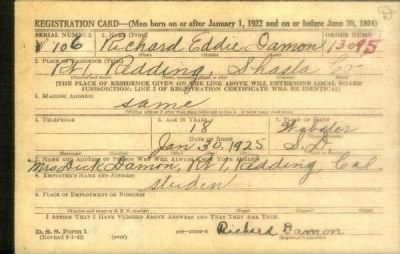 REGISTRATION CARD—(Men born on or after January 1, 1922 and on or before June 30, 1924)
SERIAL NUMBER 1. NAME (Print) ORDER NUMBER
V 106 Richard Eddie Damon 13095
2. PLACE OF RESIDENCE (Print)
Rt 1 Redding Shasta Co
(THE PLACE OF RESIDENCE GIVEN ON THE LINE ABOVE WILL DETERMINE LOCAL BOARD
JURISDICTION; LINE 2 OF REGISTRATION CERTIFICATE WILL BE IDENTICAL)
3. MAILING ADDRESS
same
4. TELEPHONE 5. AGE IN YEARS 6. PLACE OF BIRTH
18
DATE OF BIRTH
Jan 30, 1925 S.D.
7. NAME AND ADDRESS OF PERSON WHO WILL ALWAYS KNOW YOUR ADDRESS
Mrs Dick Damon, Rt 1, Redding Cal
8. EMPLOYER'S NAME AND ADDRESS
student
9. PLACE OF EMPLOYMENT OR BUSINESS
I AFFIRM THAT I HAVE VERIFIED ABOVE ANSWERS AND THAT THEY ARE TRUE.
D. S. S. Form 1
(Revised 6-1-42) (over)
Richard Damon